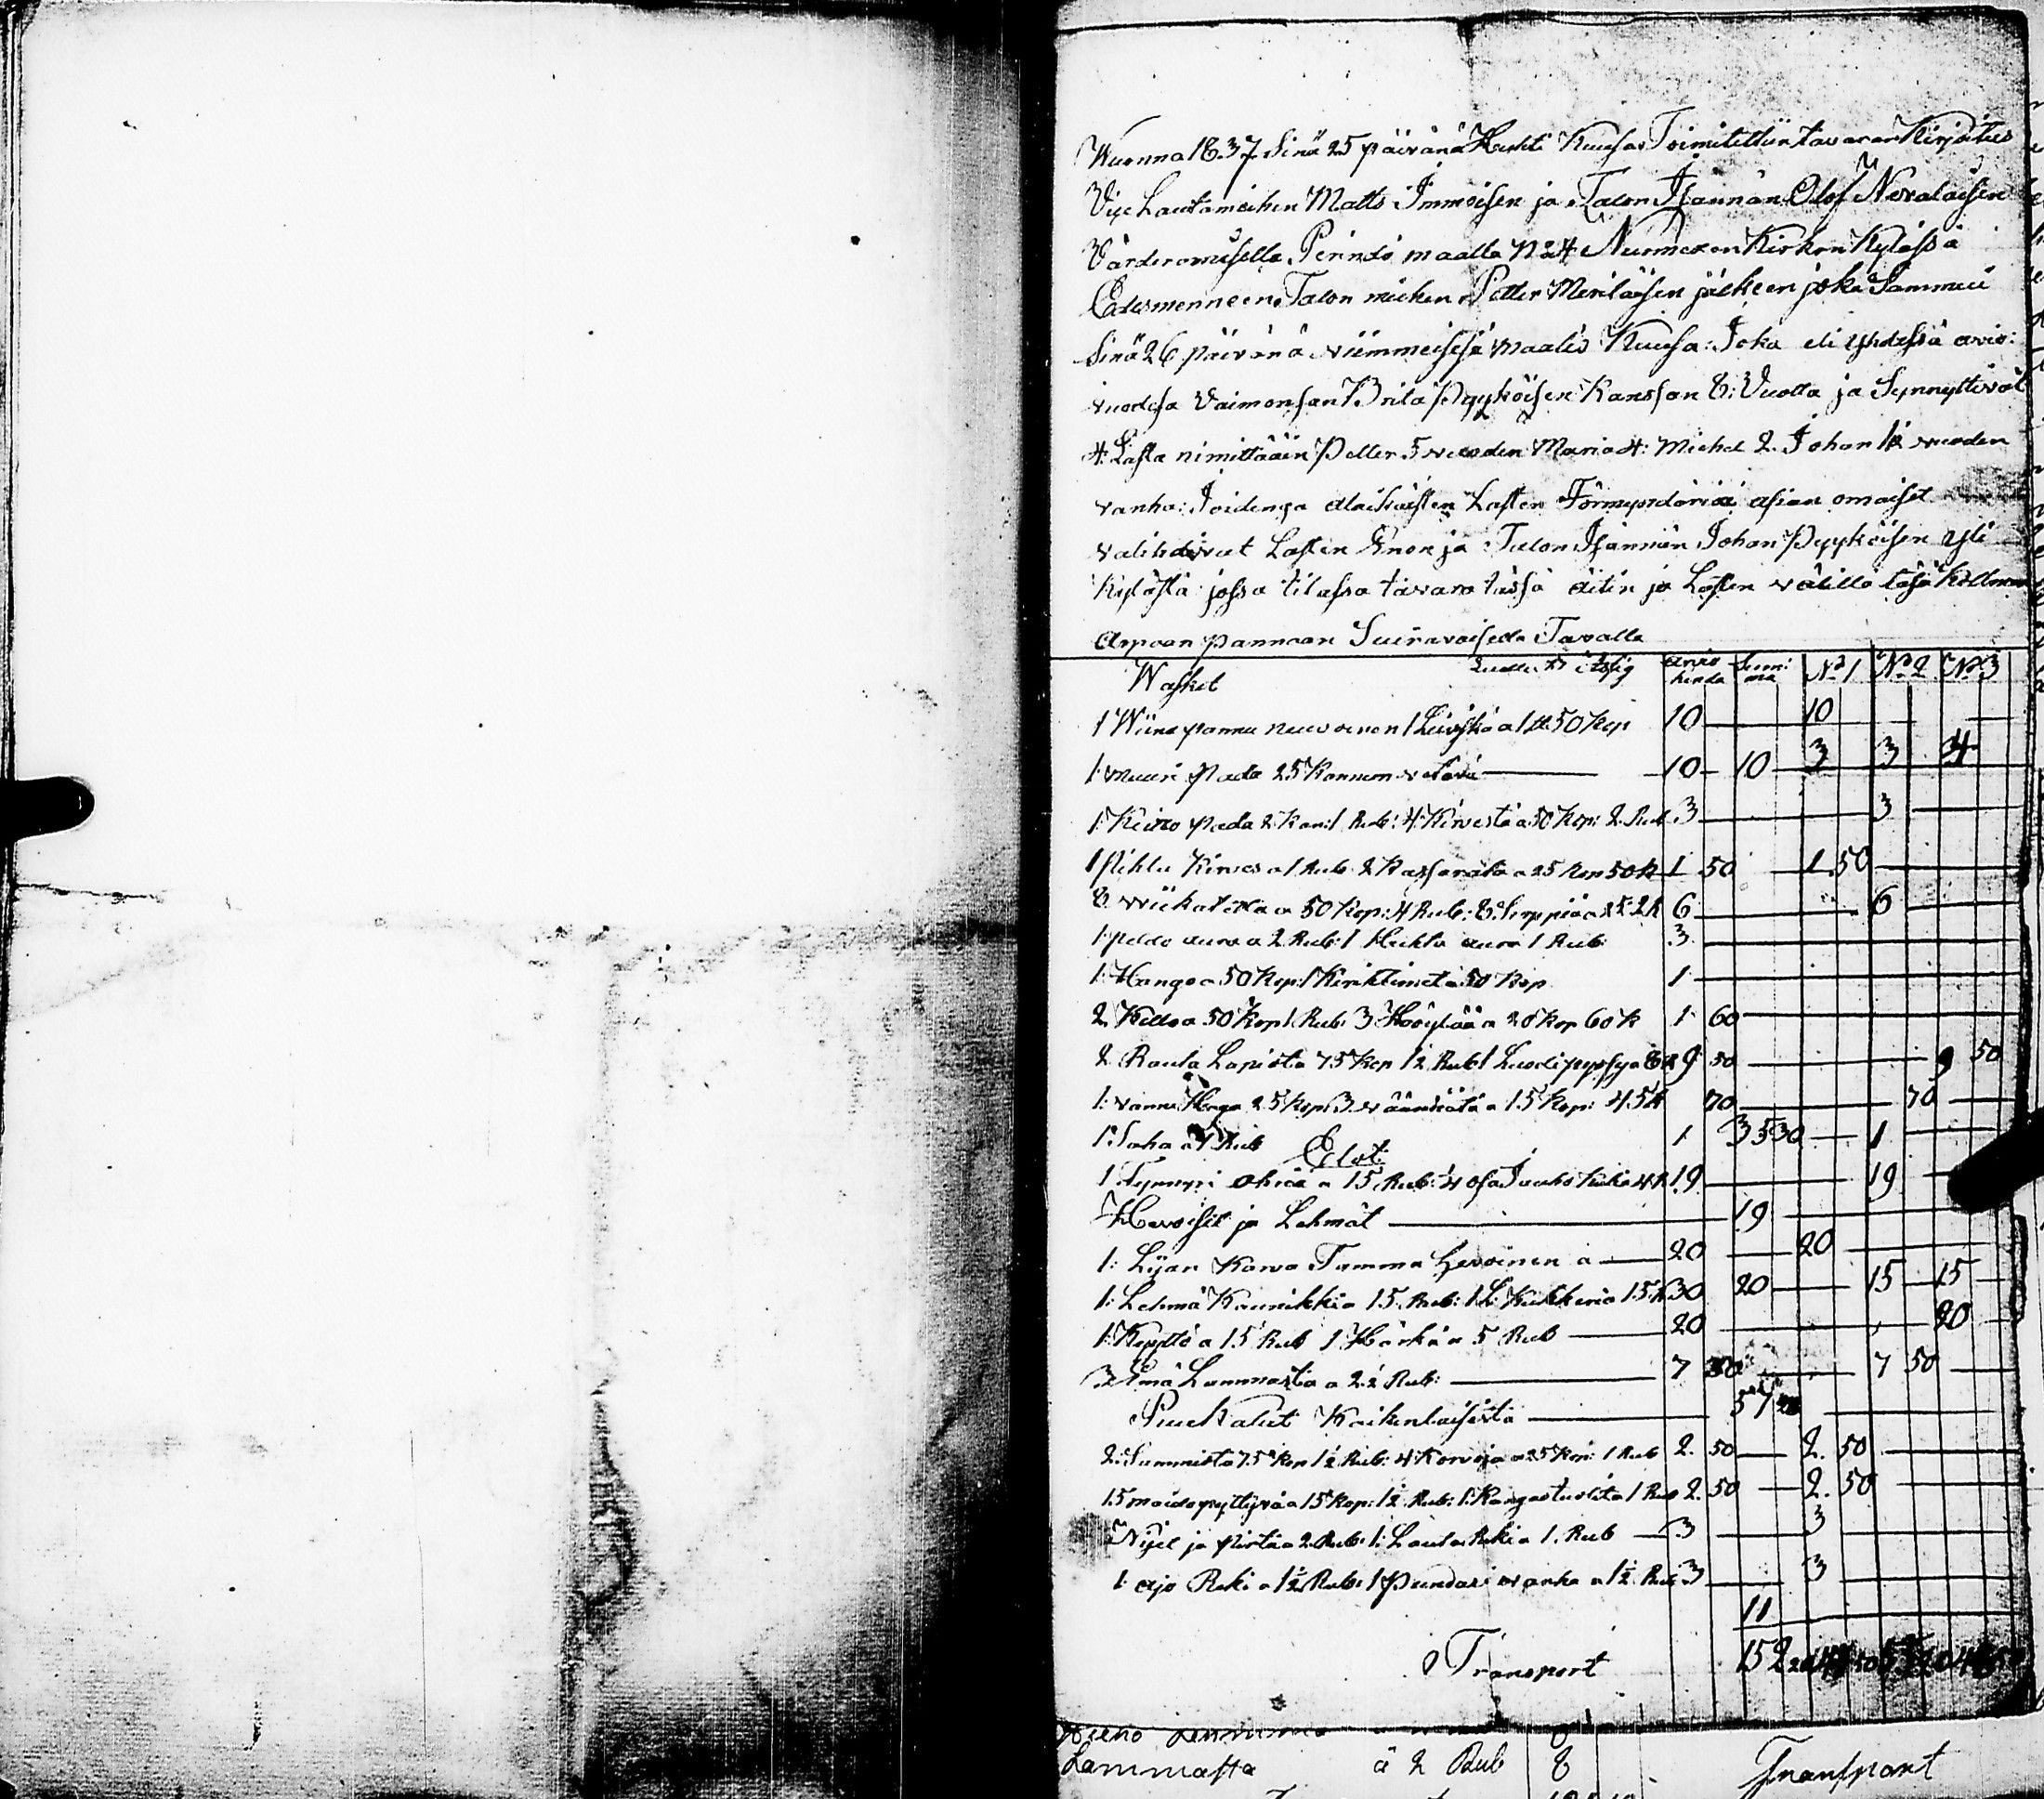 Wuonna 1837 Sinä 25 päivänä Huhti Kuusa Toimitettiin tavaran Kirjoitus
Vije Lautamiehen Matts Immoisen ja Talon Isännän Olof Nevalaisen
Värderamisella Perindö maalla No 24 Nurmexen Kirkon Kylässä
Edesmenneen Talon miehen Petter Meriläisen jälkeen joka Sammui
Sinä 26 päivänä viimmeisesä Maalis Kuusa: Joka eli yhdessä avio:
vuodesa Vaimonsan Brita Pyyköisen Kanssan 8: Vuotta ja Synnyttivät
4: Lasta nimittäin Petter 5 vuoden Maria 4: Michel 2. Johan 1½ vuoden
vanha: Joidenga alaikäisten Lasten Förmyndäriä asian omaiset
valihdivat Lasten Enon ja Talon Isännän Johan Pyyköisen yli
Kylästä jossa tilassa tavara tässä äitin ja Lasten välillä
Arpaan pannaan Seuravaisella Tavalla
Wasket arvo hinda Summa No 1 No 2 No 3
1 Wiina pannu 1 Leiviskä a 1 50 Kop 10 10
1 muuri Pata 25 Kannun vetävä 10 10 3 3 4
1: Keitto pada 2 Kan: 1 Rub: 4: Kirvestä a 50 Kop: 2. Rub 3 3
1 Pihlu Kirves a 1 Rub 2 Kassarata a 25 Kop 50 K 1 50 1 50
8 viikatetta a 50 Kop: 4 Rub: 8: Sirppiä a 25 2 R 6 6
1: peldo aura a 2 Rub: 1 Huhta aura 1 Rub: 3
1: Hango a 50 Kop: 1 50 Kop 1
2 Kelloa 50 Kop 1. Rub: 3 Höylää a 20 Kop 60 K 1 60
2 Rauta Lapiota 75 Kop 1½ Rub 1 Luodi pyssy a 8 R 9 50 9 50
1: vanna Hanga 25 Kop: 3 vääntiätä a 15 Kop: 45 K 70 70
1: Saha a 1 Rub 1 35 30 1
Elot:
1 Tynnyri Ohria a 15 Rub: 4 19 19
Hevoiset ja Lehmät 19
1: Lijan Karva Tamma Hevoinen a 20 20
1: Lehmä Kaunikki a 15 Rub: 1 L: Kukkeri a 15 R 30 20 15 15
1: Kyyttö a 15 Rub 1 Härkä a 5 Rub 20 20
3 Emä Lammasta a 2½ Rub: 7 50 7 50
Puu Kalut Kaikenlaisista 57
2: Sammiota 75 Kop 1½ Rub: 4 Korvoja a 25 Kop: 1 Rub 2. 50 2. 50
15 maido pyttyä a 15 Kop: 1½ Rub: 1: Kangas tuolita 1 Rub 2. 50 2. 50
Nijet ja pirtä a 2. Rub: 1: Lauta Reki a 1. Rub 3 3
1: ajo Reki a 1½ Rub: 1 Pundari vanha a 1½ Rub 3 3
11
Transport 152
Lammasta a 2 Rub 8 Transport